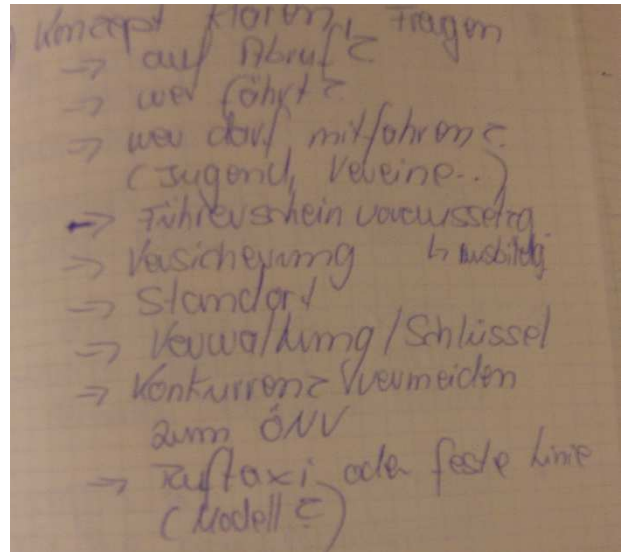 Konzept klären, Fragen
→ auf Abruf?
→ wer fährt?
→ wer darf mitfahren?
(Jugend, Vereine..)
→ Führerscheinvoraussetzg
→ Versicherung ↳ Ausbildg
→ Standort
→ Verwaltung/Schlüssel
→ Konkurrenz vermeiden
zum ÖNV
→ Ruftaxi oder feste Linie
(Modell?)